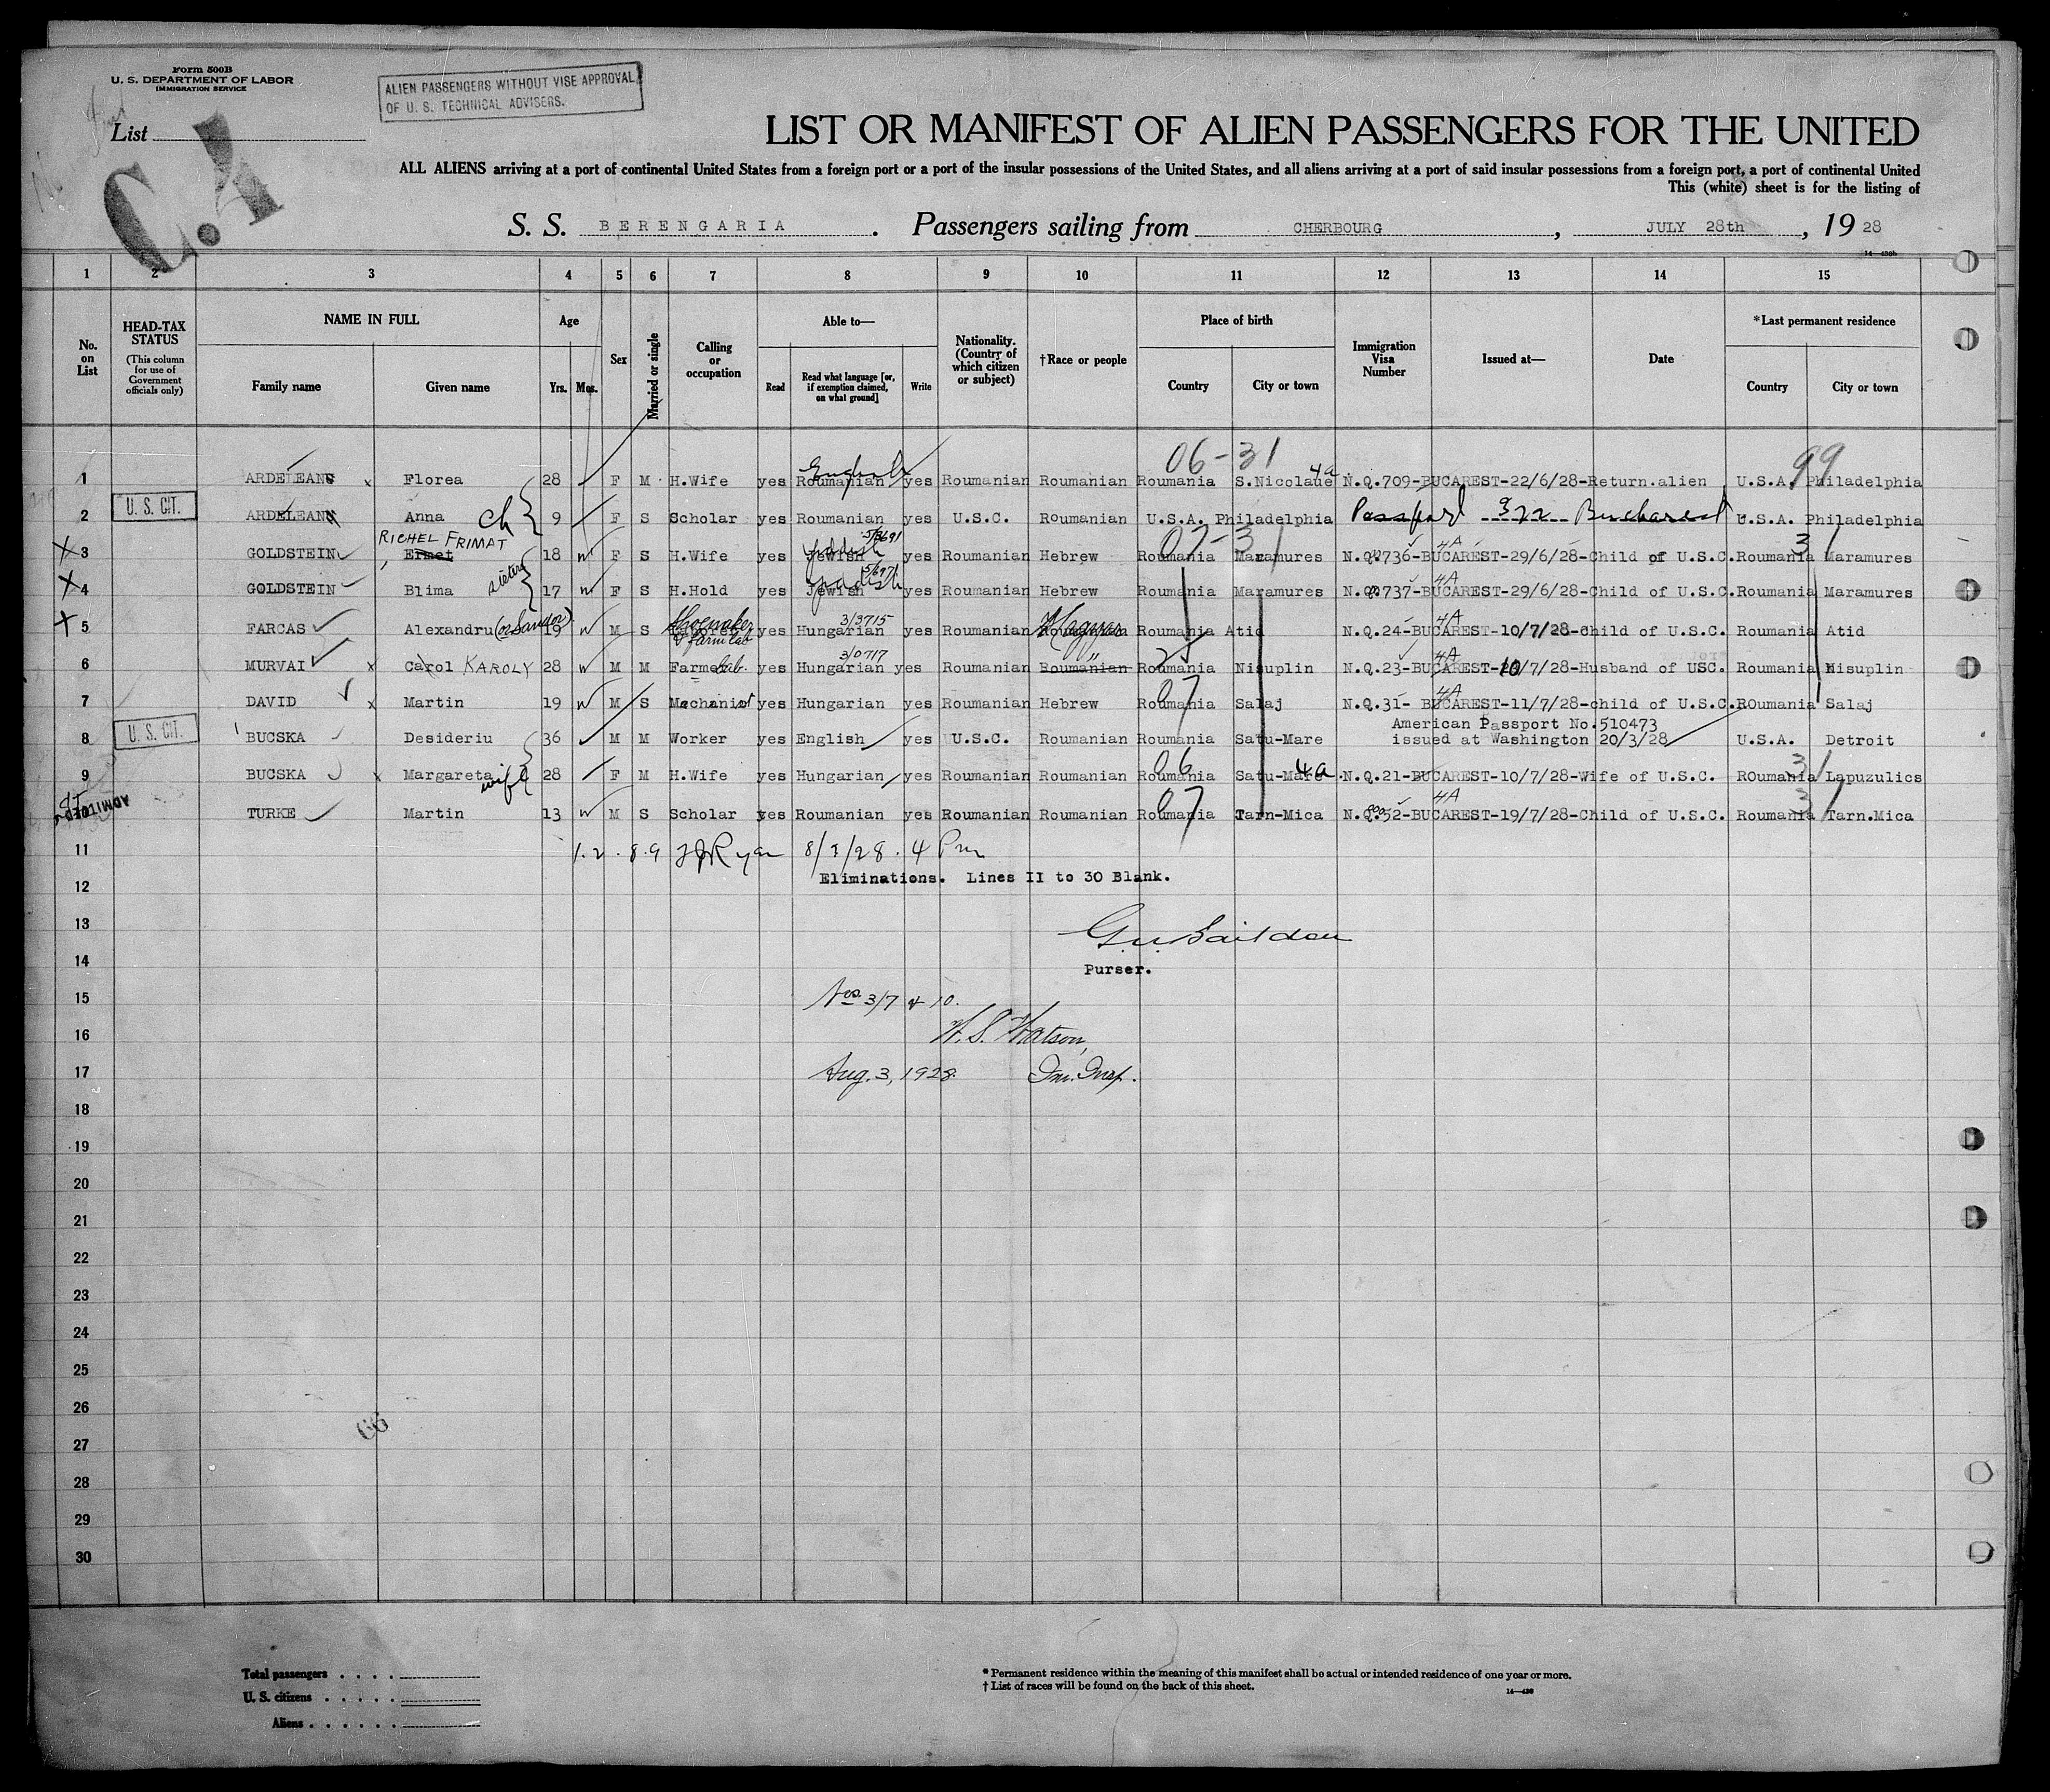 Form 500B
U. S. DEPARTMENT OF LABOR
IMMIGRATION SERVICE
ALIEN PASSENGERS WITHOUT VISE APPROVAL
OF U. S. TECHNICAL ADVISERS.
List
LIST OR MANIFEST OF ALIEN PASSENGERS FOR THE UNITED
ALL ALIENS arriving at a port of continental United States from a foreign port or a port of the insular possessions of the United States, and all aliens arriving at a port of said insular possessions from a foreign port, a port of continental United
This (white) sheet is for the listing of
S. S. BERENGARIA . Passengers sailing from CHERBOURG , JULY 28th , 19 28
14—430b
1 2 3 4 5 6 7 8 9 10 11 12 13 14 15
No. on List
HEAD-TAX STATUS (This column for use of Government officials only)
NAME IN FULL
Family name
Given name
Age
Yrs.
Mos.
Sex
Married or single
Calling or occupation
Able to—
Read
Read what language [or, if exemption claimed, on what ground]
Write
Nationality. (Country of which citizen or subject)
†Race or people
Place of birth
Country
City or town
Immigration Visa Number
Issued at—
Date
*Last permanent residence
Country
City or town
06-31 99
English 4a
1 ARDELEANU x Florea 28 F M H.Wife yes Roumanian yes Roumanian Roumanian Roumania S.Nicolaue N.Q.709-BUCAREST-22/6/28-Return.alien U.S.A. Philadelphia
U. S. CIT.
2 ARDELEANU Anna ch 9 F S Scholar yes Roumanian yes U.S.C. Roumanian U.S.A. Philadelphia Passport 322 Bucharest U.S.A. Philadelphia
RICHEL FRIMAT
3 GOLDSTEIN Ermet 18 F S H.Wife yes Jewish Yiddish yes Roumanian Hebrew Roumania Maramures N.Q.736-BUCAREST-29/6/28-Child of U.S.C. Roumania Maramures
4 GOLDSTEIN Blima sister 17 F S H.Hold yes Jewish Yiddish yes Roumanian Hebrew Roumania Maramures N.Q.737-BUCAREST-29/6/28-Child of U.S.C. Roumania Maramures
Shoemaker 3/3715 Magyar 4A
5 FARCAS Alexandru (or Sandor) 19 M S & farm lab yes Hungarian yes Roumanian Roumania Atid N.Q.24-BUCAREST-10/7/28-child of U.S.C. Roumania Atid
3/0717 " 4A
6 MURVAI x Carol KAROLY 28 M M Farmer Lab. yes Hungarian yes Roumanian Roumanian Roumania Nisuplin N.Q.23-BUCAREST-10/7/28-Husband of USC. Roumania Nisuplin
07 4A
7 DAVID x Martin 19 M S Mechanist yes Hungarian yes Roumanian Hebrew Roumania Salaj N.Q.31- BUCAREST-11/7/28-child of U.S.C. ROumania Salaj
U. S. CIT.
American Passport No.510473
8 BUCSKA Desideriu 36 M M Worker yes English yes U.S.C. Roumanian Roumania Satu-Mare issued at Washington 20/3/28 U.S.A. Detroit
06 31
9 BUCSKA x Margareta wife 28 F M H.Wife yes Hungarian yes Roumanian Roumanian Roumania Satu-Mare 4a N.Q.21-BUCAREST-10/7/28-Wife of U.S.C. ROumania Lapuzulics
ADMITTED
07 4A 31
TURKE Martin 13 M S Scholar yes Roumanian yes Roumanian Roumanian Roumania Tarn-Mica N.Q.52-BUCAREST-19/7/28-Child of U.S.C. Roumania Tarn.Mica
11 1.2.8.9 Ryan 8/3/28. 4 Pm
12 Eliminations. Lines II to 30 Blank.
13
14 Purser.
15 Nos 3/7 & 10.
16 W. S. Watson,
17 Aug. 3, 1928. Im. Insp.
18
19
20
21
22
23
24
25
26
27
28
29
30
Total passengers
U. S. citizens
Aliens
* Permanent residence within the meaning of this manifest shall be actual or intended residence of one year or more.
† List of races will be found on the back of this sheet.
14—430